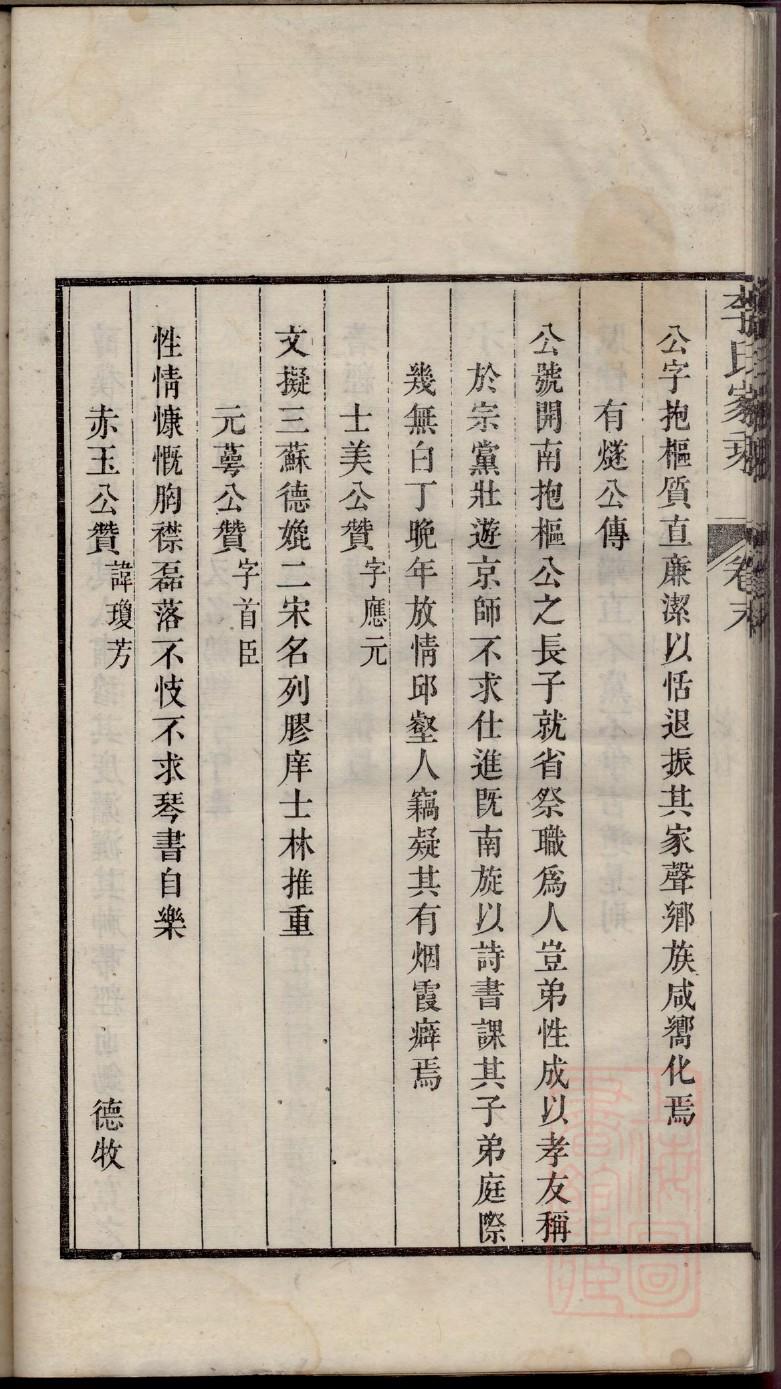 李氏家乘 卷末
公字抱樞質直廉潔以恬退振其家聲鄉族咸嚮化焉
有燧公傳
公號開南抱樞公之長子就省祭職爲人豈弟性成以孝友稱
於宗黨壯遊京師不求仕進既南旋以詩書課其子弟庭際
幾無白丁晚年放情邱壑人竊疑其有烟霞癖焉
士美公贊 字應元
文擬三蘇德媲二宋名列膠庠士林推重
元蕚公贊 字首臣
性情慷慨胸襟磊落不忮不求琴書自樂
赤玉公贊 諱瓊芳 德牧